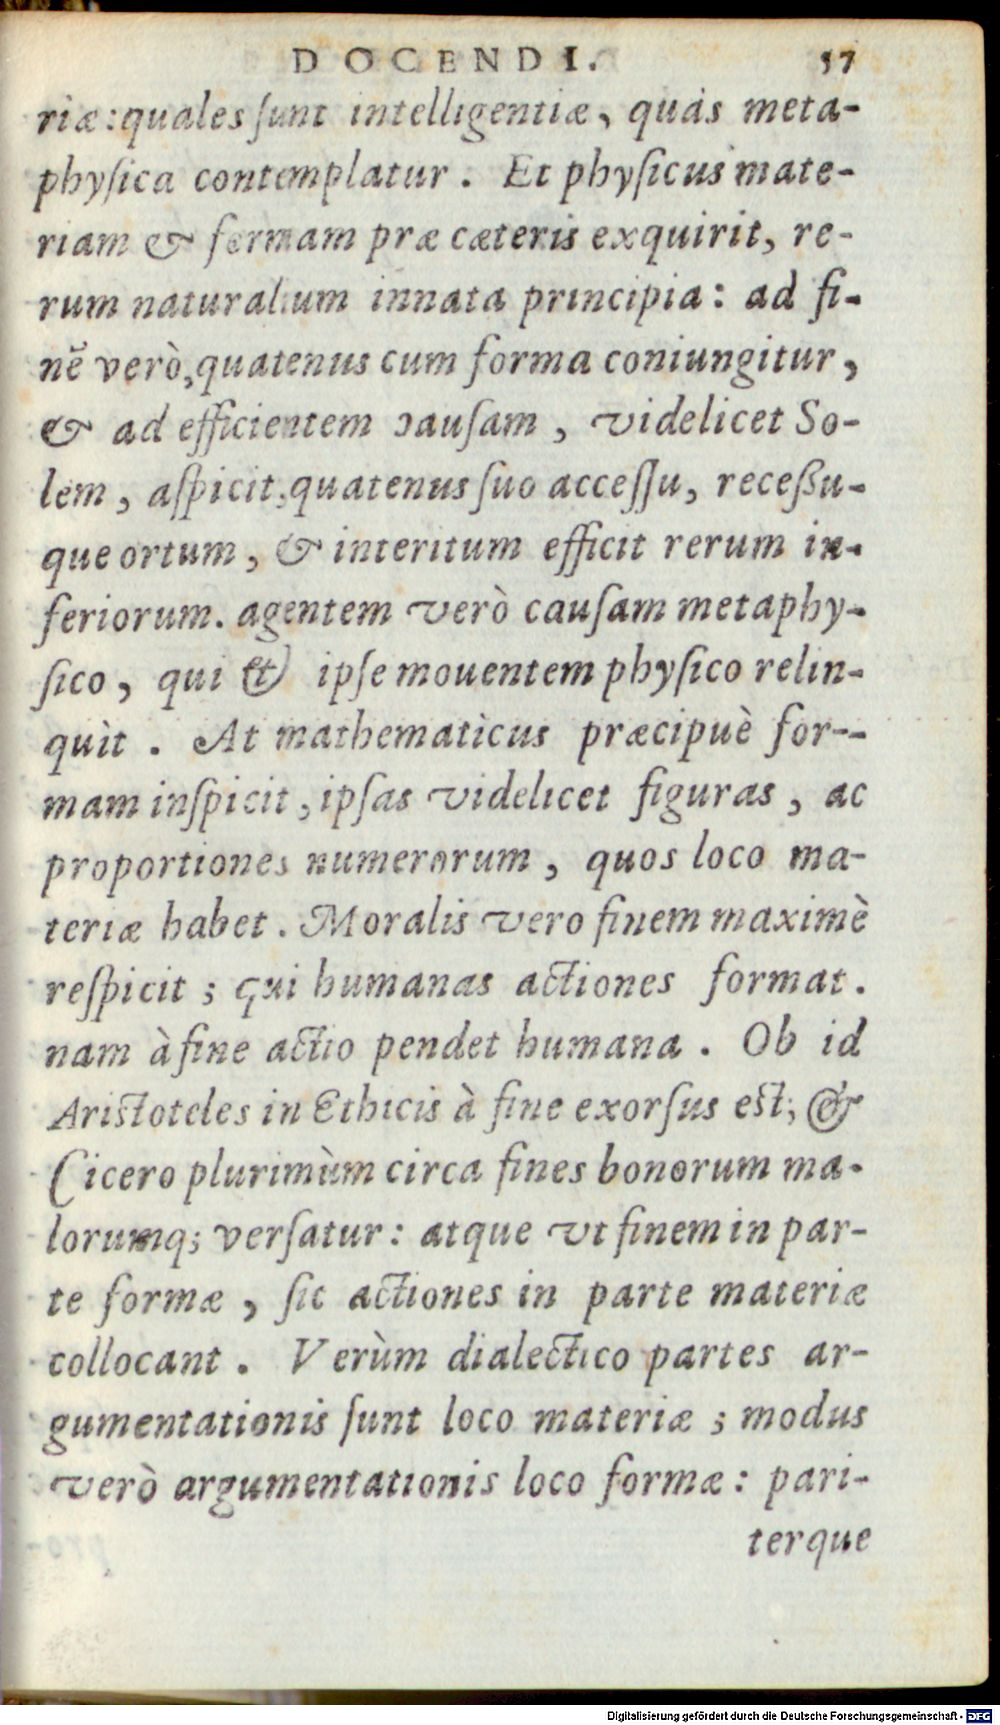 DOCENDI. 57
riæ: quales ſunt intelligentiæ, quas meta-
phyſica contemplatur. Et phyſicus mate-
riam & formam præ cæteris exquirit, re-
rum naturalium innata principia: ad fi-
nẽ verò, quatenus cum forma coniungitur,
& ad efficientem ɔauſam, videlicet So-
lem, aſpicit, quatenus ſuo acceſſu, receßu-
que ortum, & interitum efficit rerum in-
feriorum. agentem verò cauſam metaphy-
ſico, qui & ipſe mouentem phyſico relin-
quit. At mathematicus præcipuè for--
mam inſpicit, ipſas videlicet figuras, ac
proportiones numerorum, quos loco ma-
teriæ habet. Moralis vero finem maximè
reſpicit; qui humanas actiones format.
nam à fine actio pendet humana. Ob id
Ariſtoteles in Ethicis à fine exorſus eſt; &
Cicero plurimùm circa fines bonorum ma-
lorumq; verſatur: atque vt finem in par-
te formæ, ſic actiones in parte materiæ
collocant. Verùm dialectico partes ar-
gumentationis ſunt loco materiæ; modus
verò argumentationis loco formæ: pari-
terque
Digitalisierung gefördert durch die Deutsche Forschungsgemeinschaft - DFG